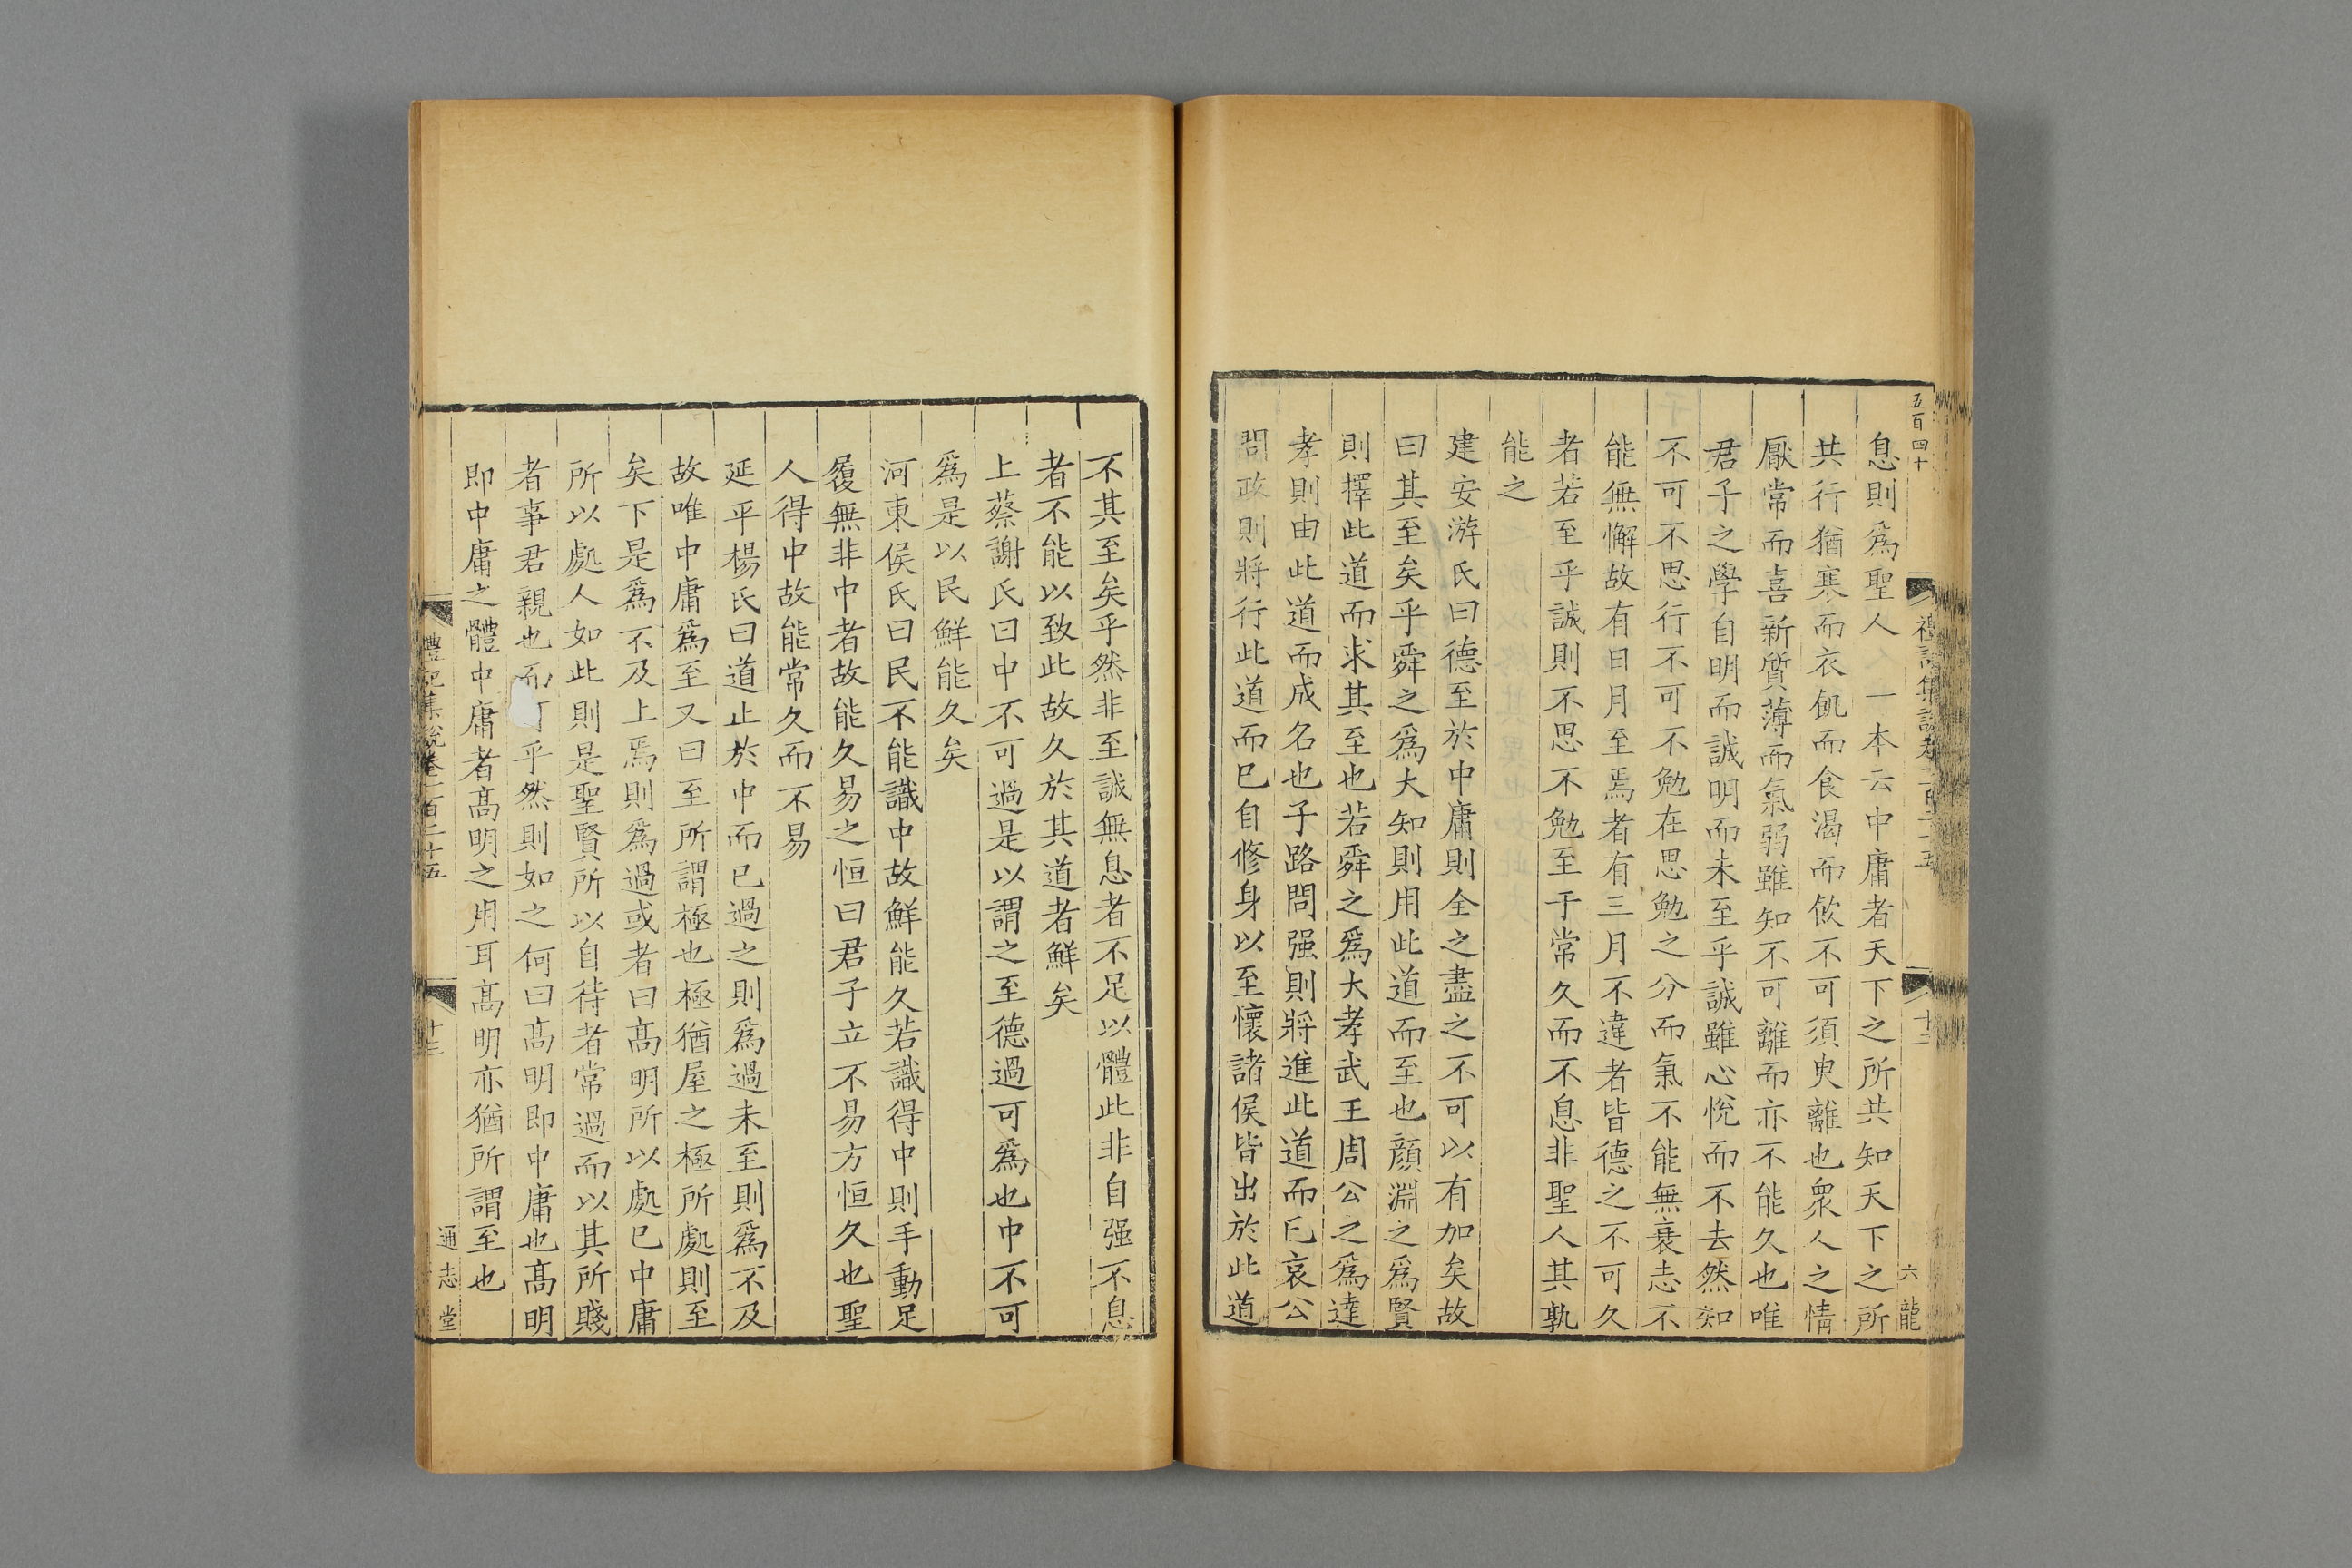 五百四十
六 龍
息則爲聖人 一本云中庸者天下之所共知天下之所
共行猶寒而衣飢而食渴而飲不可須臾離也衆人之情
厭常而喜新質薄而氣弱雖知不可離而亦不能久也唯
君子之學自明而誠明而未至乎誠雖心悅而不去然知
不可不思行不可不勉在思勉之分而氣不能無衰志不
能無懈故有日月至焉者有三月不違者皆德之不可久
者若至乎誠則不思不勉至于常久而不息非聖人其孰
能之
建安游氏曰德至於中庸則全之盡之不可以有加矣故
曰其至矣乎舜之爲大知則用此道而至也顏淵之爲賢
則擇此道而求其至也若舜之爲大孝武王周公之爲達
孝則由此道而成名也子路問强則將進此道而已哀公
問政則將行此道而已自修身以至懷諸侯皆出於此道
不其至矣乎然非至誠無息者不足以體此非自强不息
者不能以致此故久於其道者鮮矣
上蔡謝氏曰中不可過是以謂之至德過可爲也中不可
爲是以民鮮能久矣
河東侯氏曰民不能識中故鮮能久若識得中則手動足
履無非中者故能久易之恒曰君子立不易方恒久也聖
人得中故能常久而不易
延平楊氏曰道止於中而已過之則爲過未至則爲不及
故唯中庸爲至又曰至所謂極也極猶屋之極所處則至
矣下是爲不及上焉則爲過或者曰高明所以處已中庸
所以處人如此則是聖賢所以自待者常過而以其所賤
者事君親也而可乎然則如之何曰高明即中庸也高明
即中庸之體中庸者高明之用耳高明亦猶所謂至也
禮記集說卷一百二十五
十三
通志堂